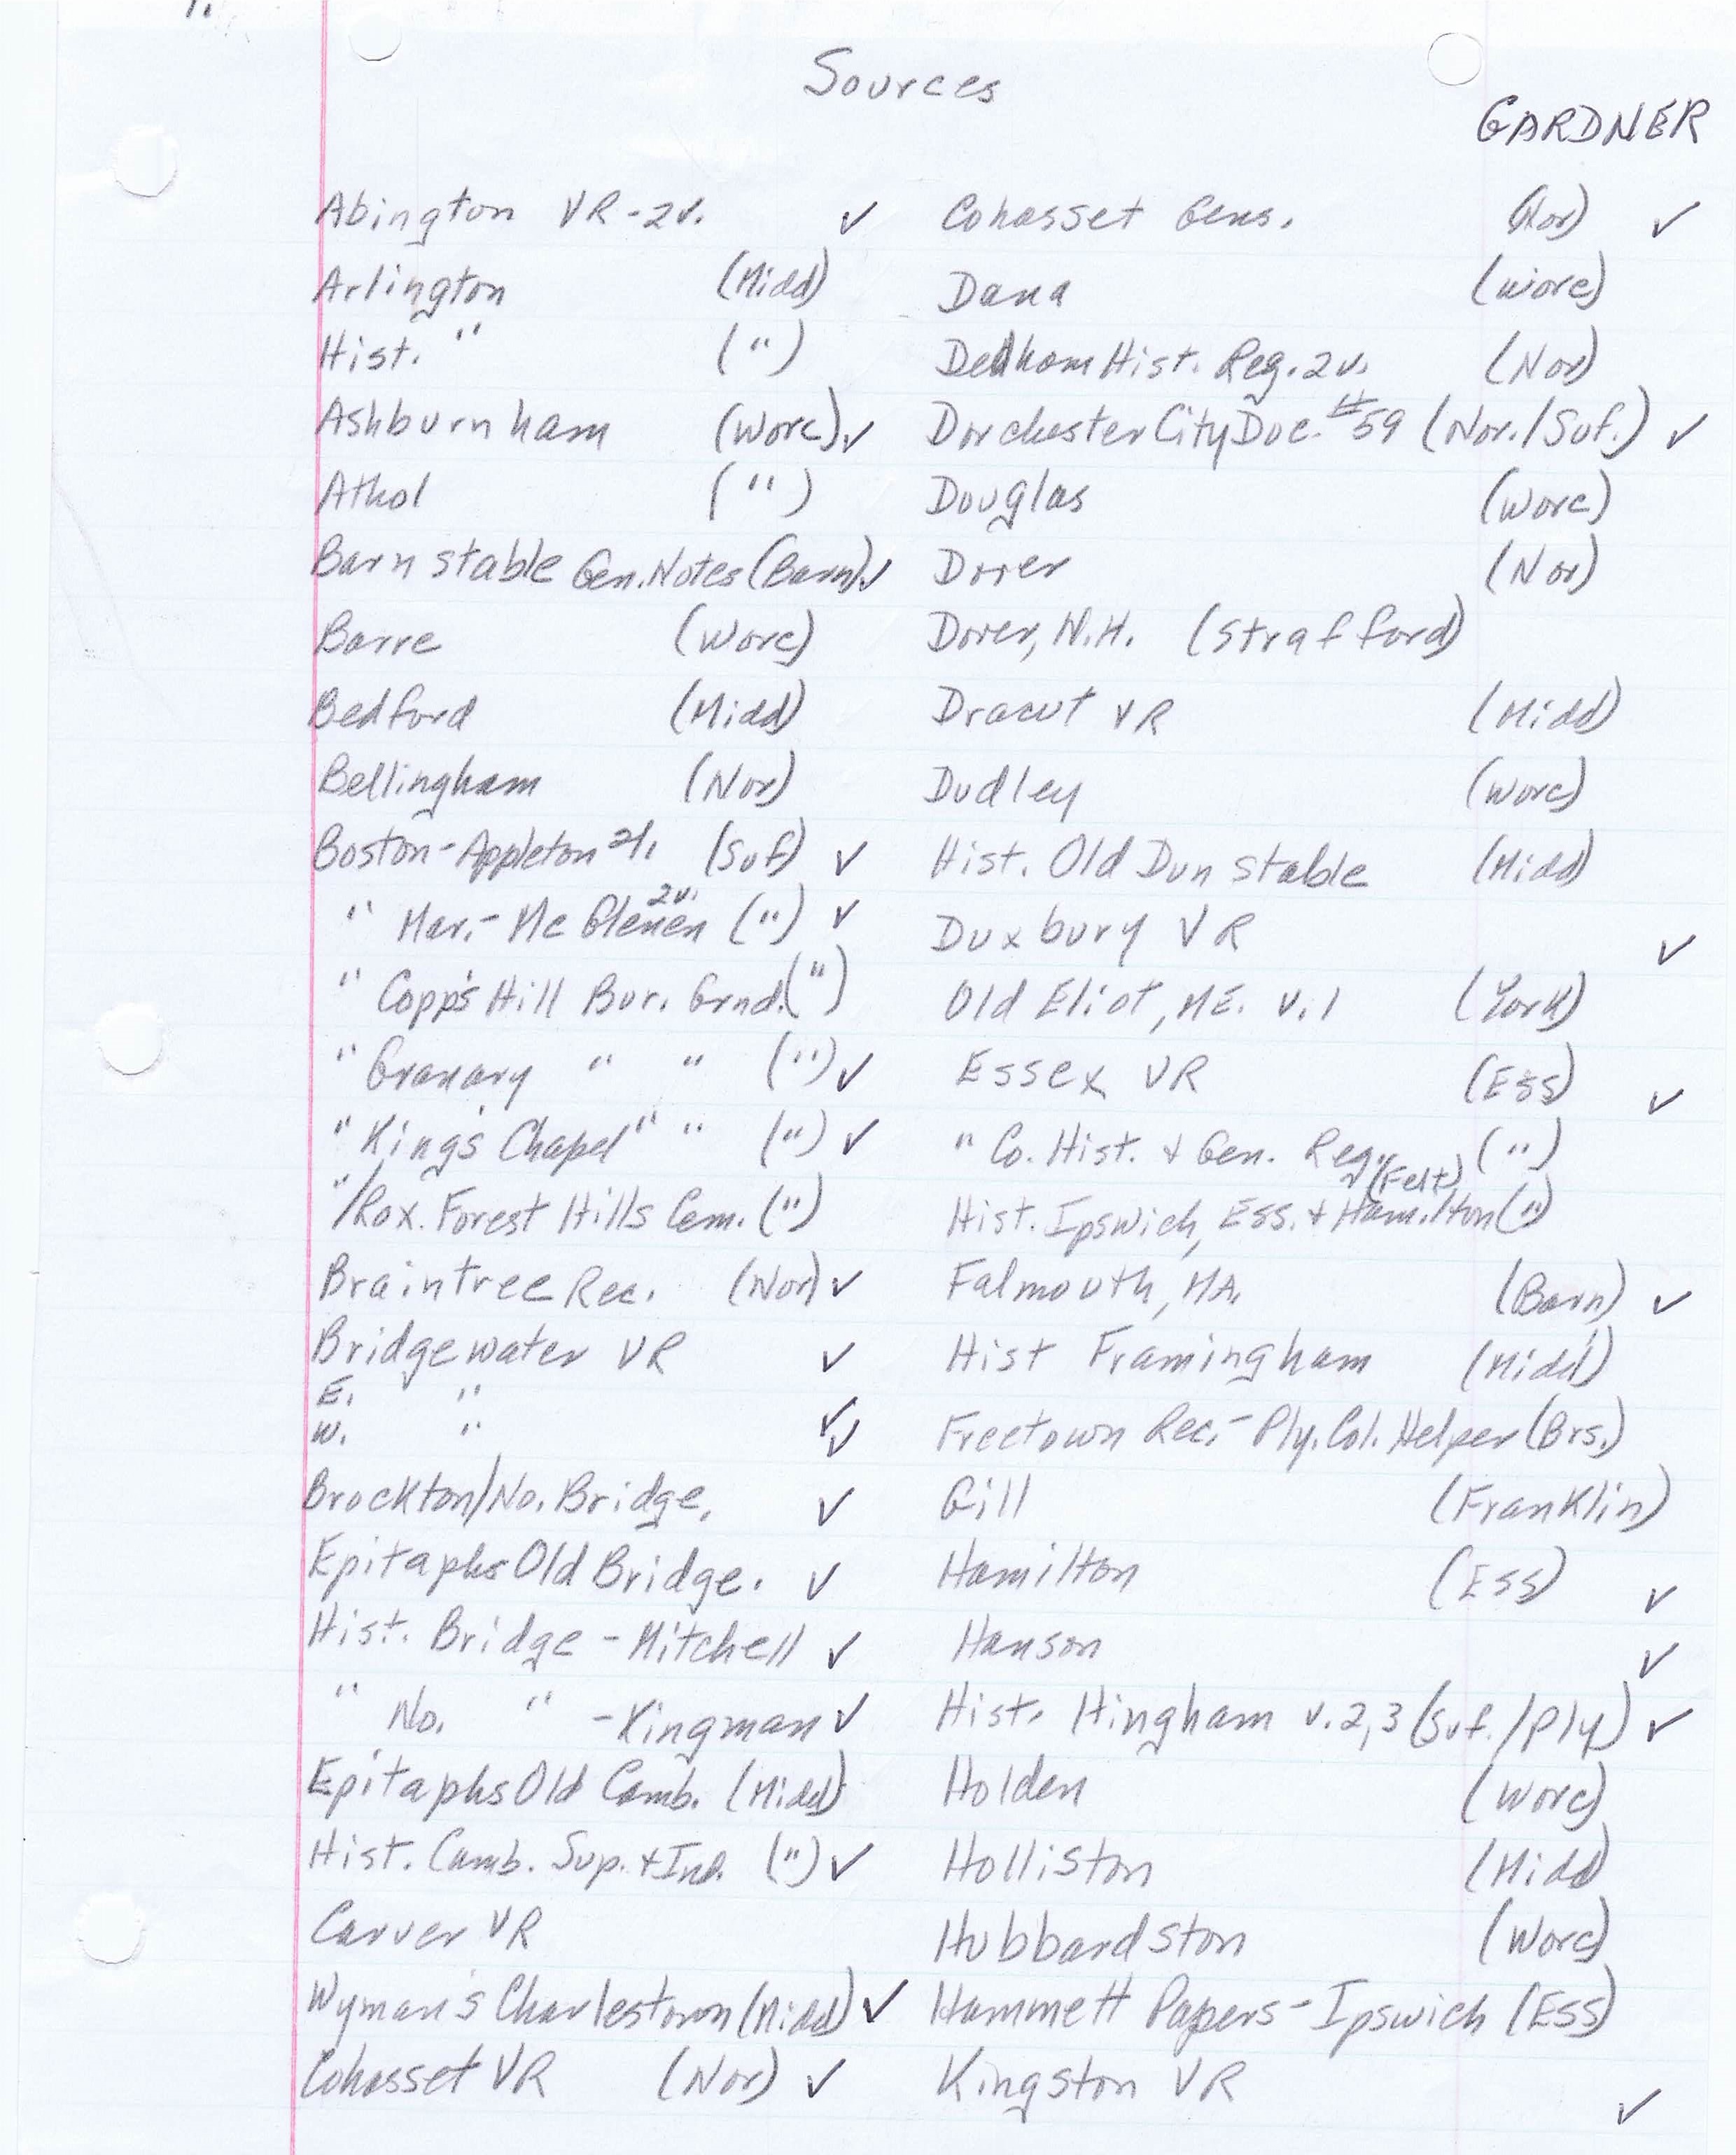 1.
Sources
GARDNER
Abington VR-2v. ✓
Arlington (Midd)
Hist. " (")
Ashburnham (Worc) ✓
Athol (")
Barnstable Gen. Notes (Barn) ✓
Barre (Worc)
Bedford (Midd)
Bellingham (Nor)
Boston-Appleton 2v. (Suf) ✓
" Mar.- McGlenen 2v. (") ✓
" Copp's Hill Bur. Grnd. (")
" Granary " " (") ✓
" King's Chapel " " (") ✓
"/Rox. Forest Hills Cem. (")
Braintree Rec. (Nor) ✓
Bridgewater VR ✓
E. " ✓
W. " ✓
Brockton/No. Bridge. ✓
Epitaphs Old Bridge. ✓
Hist. Bridge - Mitchell ✓
" No. " - Kingman ✓
Epitaphs Old Camb. (Midd)
Hist. Camb. Sup. + Ind. (") ✓
Carver VR
Wyman's Charlestown (Midd) ✓
Cohasset VR (Nor) ✓
Cohasset Gens. (Nor) ✓
Dana (Worc)
Dedham Hist. Reg. 2v. (Nor)
Dorchester City Doc. #59 (Nor./Suf.) ✓
Douglas (Worc)
Dover (Nor)
Dover, N.H. (Strafford)
Dracut VR (Midd)
Dudley (Worc)
Hist. Old Dunstable (Midd)
Duxbury VR ✓
Old Eliot, ME. v.1 (York)
Essex VR (Ess) ✓
" Co. Hist. + Gen. Reg. (")
Hist. Ipswich, Ess. + Hamilton (Felt) (")
Falmouth, MA. (Barn) ✓
Hist Framingham (Midd)
Freetown Rec.- Ply. Col. Helper (Brs.)
Gill (Franklin)
Hamilton (Ess) ✓
Hanson ✓
Hist. Hingham v. 2,3 (Suf./Ply) ✓
Holden (Worc)
Holliston (Midd)
Hubbardston (Worc)
Hammett Papers - Ipswich (Ess)
Kingston VR ✓